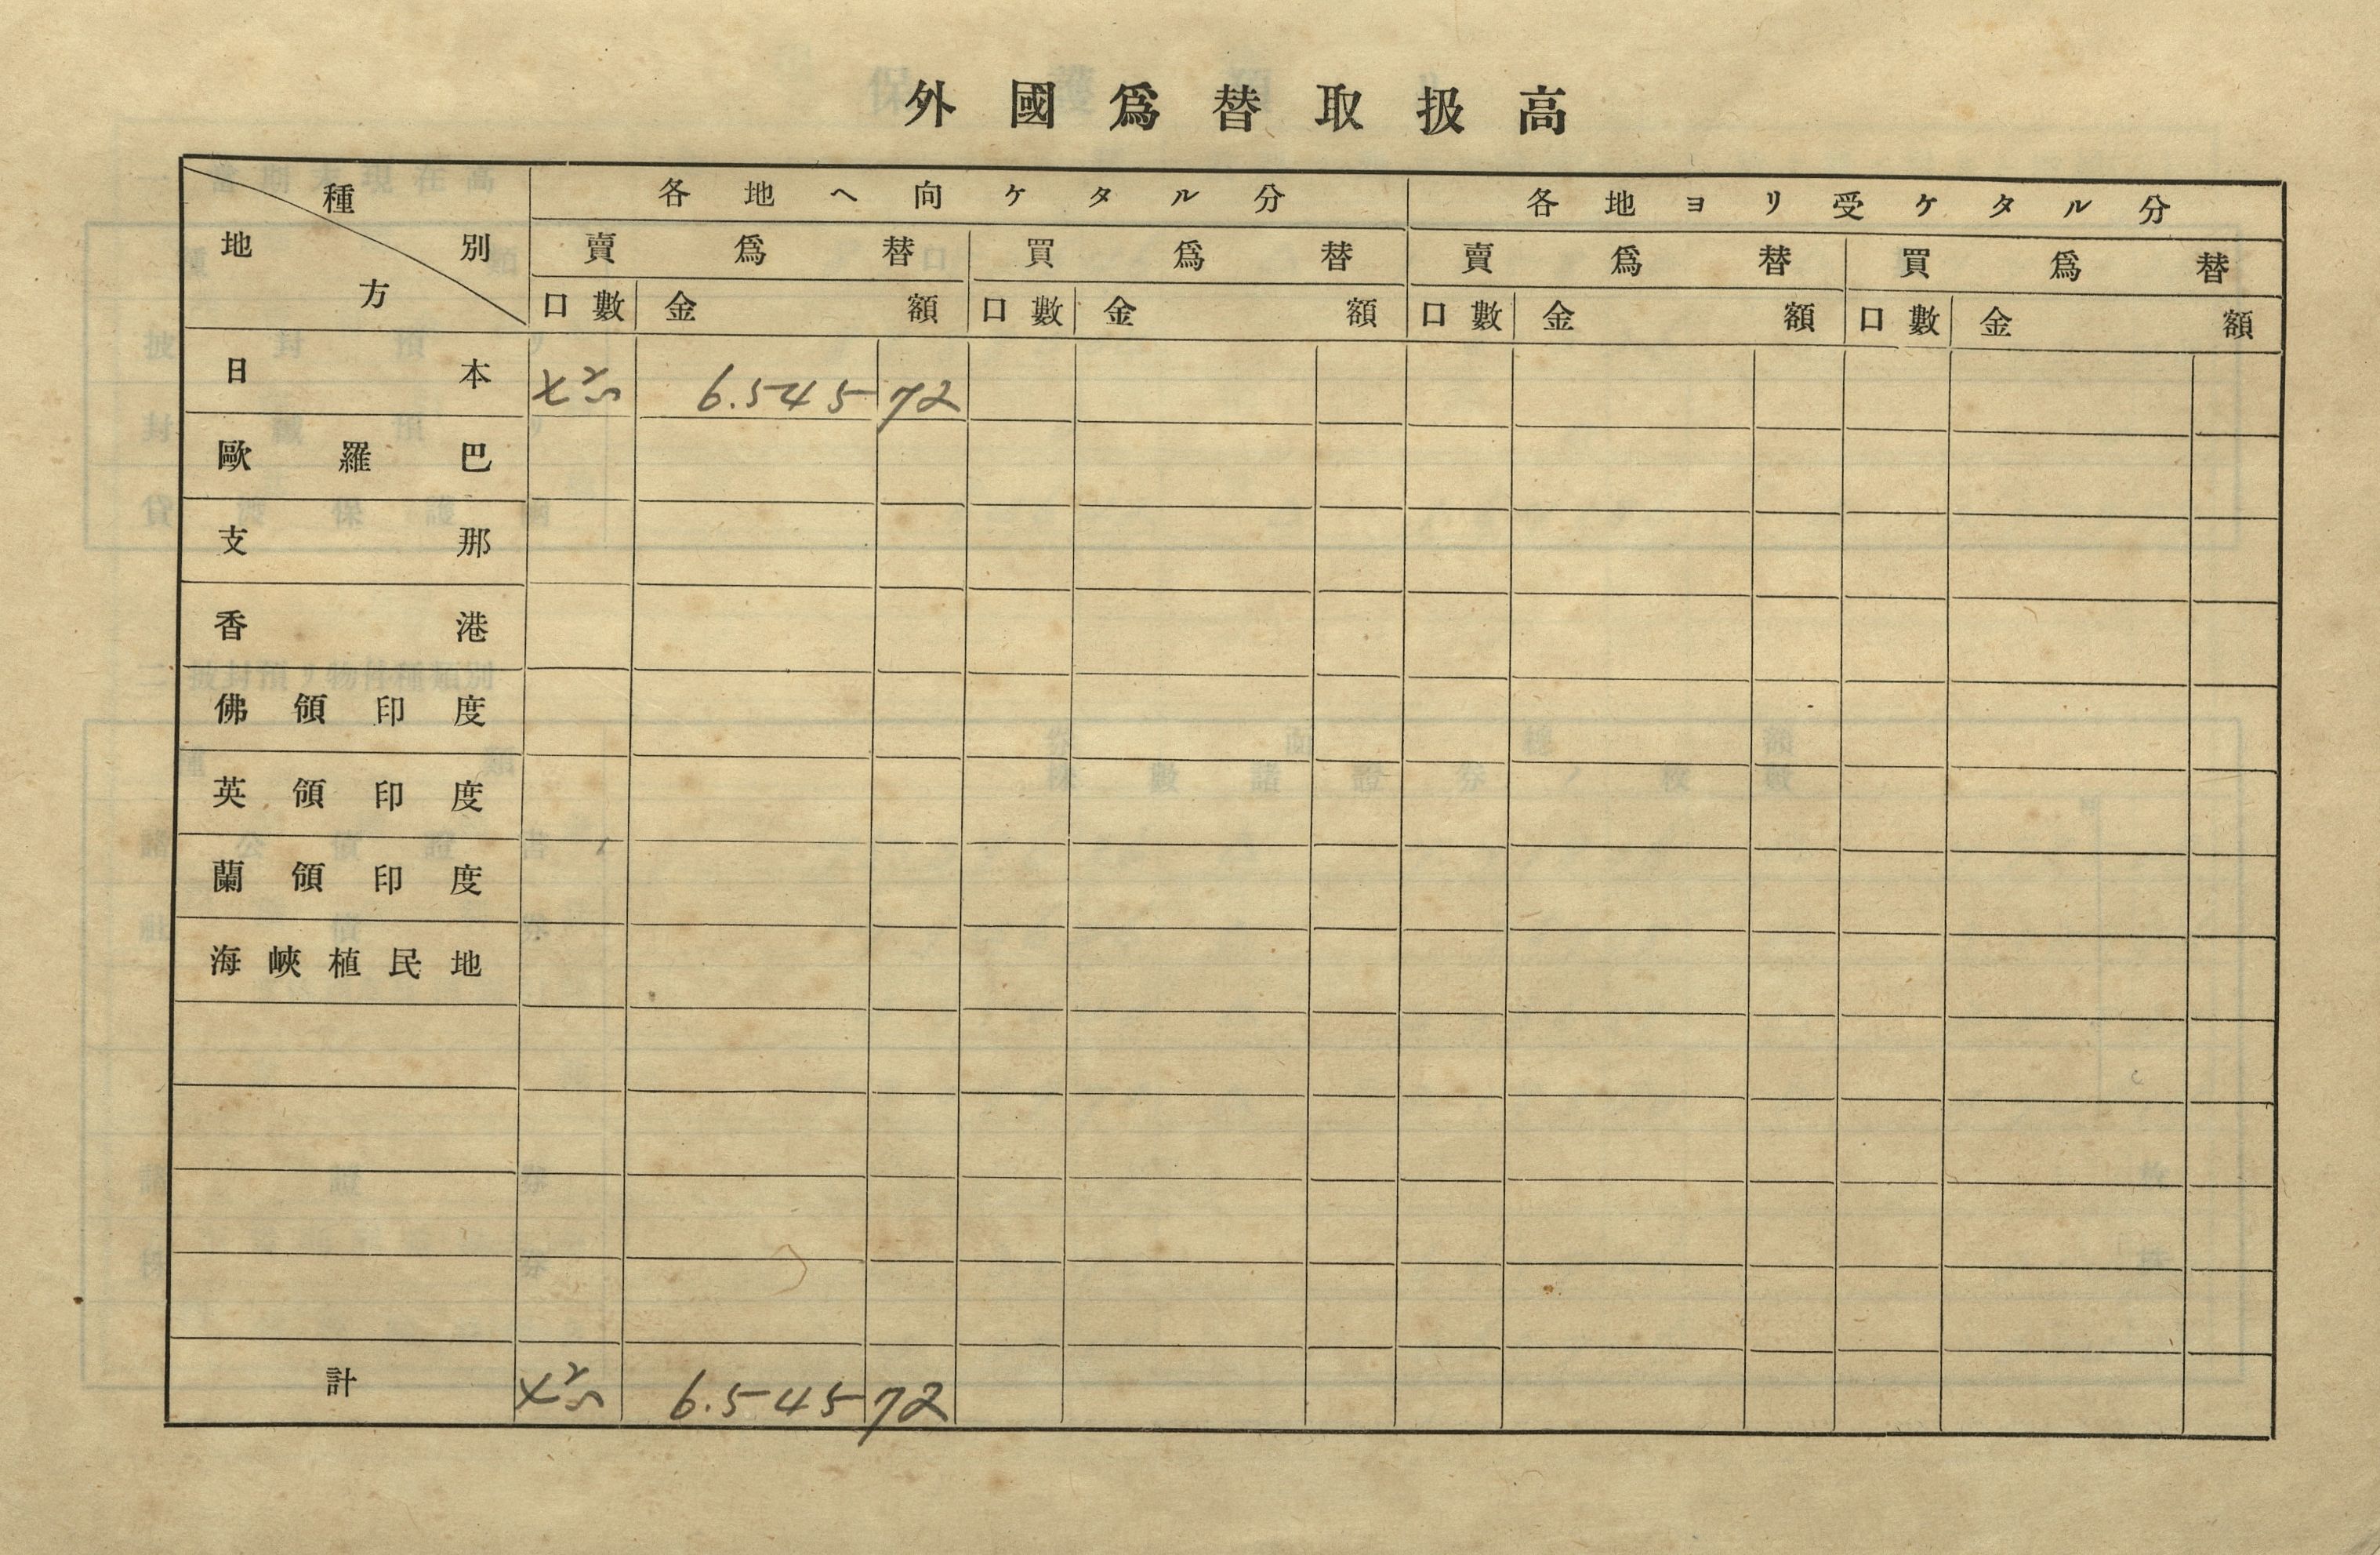 外國爲替取扱高
種別 地方 各地ヘ向ケタル分 各地ヨリ受ケタル分
賣爲替 買爲替 賣爲替 買爲替
口數 金額 口數 金額 口數 金額 口數 金額
日本 6.545 72
歐羅巴
支那
香港
佛領印度
英領印度
蘭領印度
海峽植民地
計 6.545 72